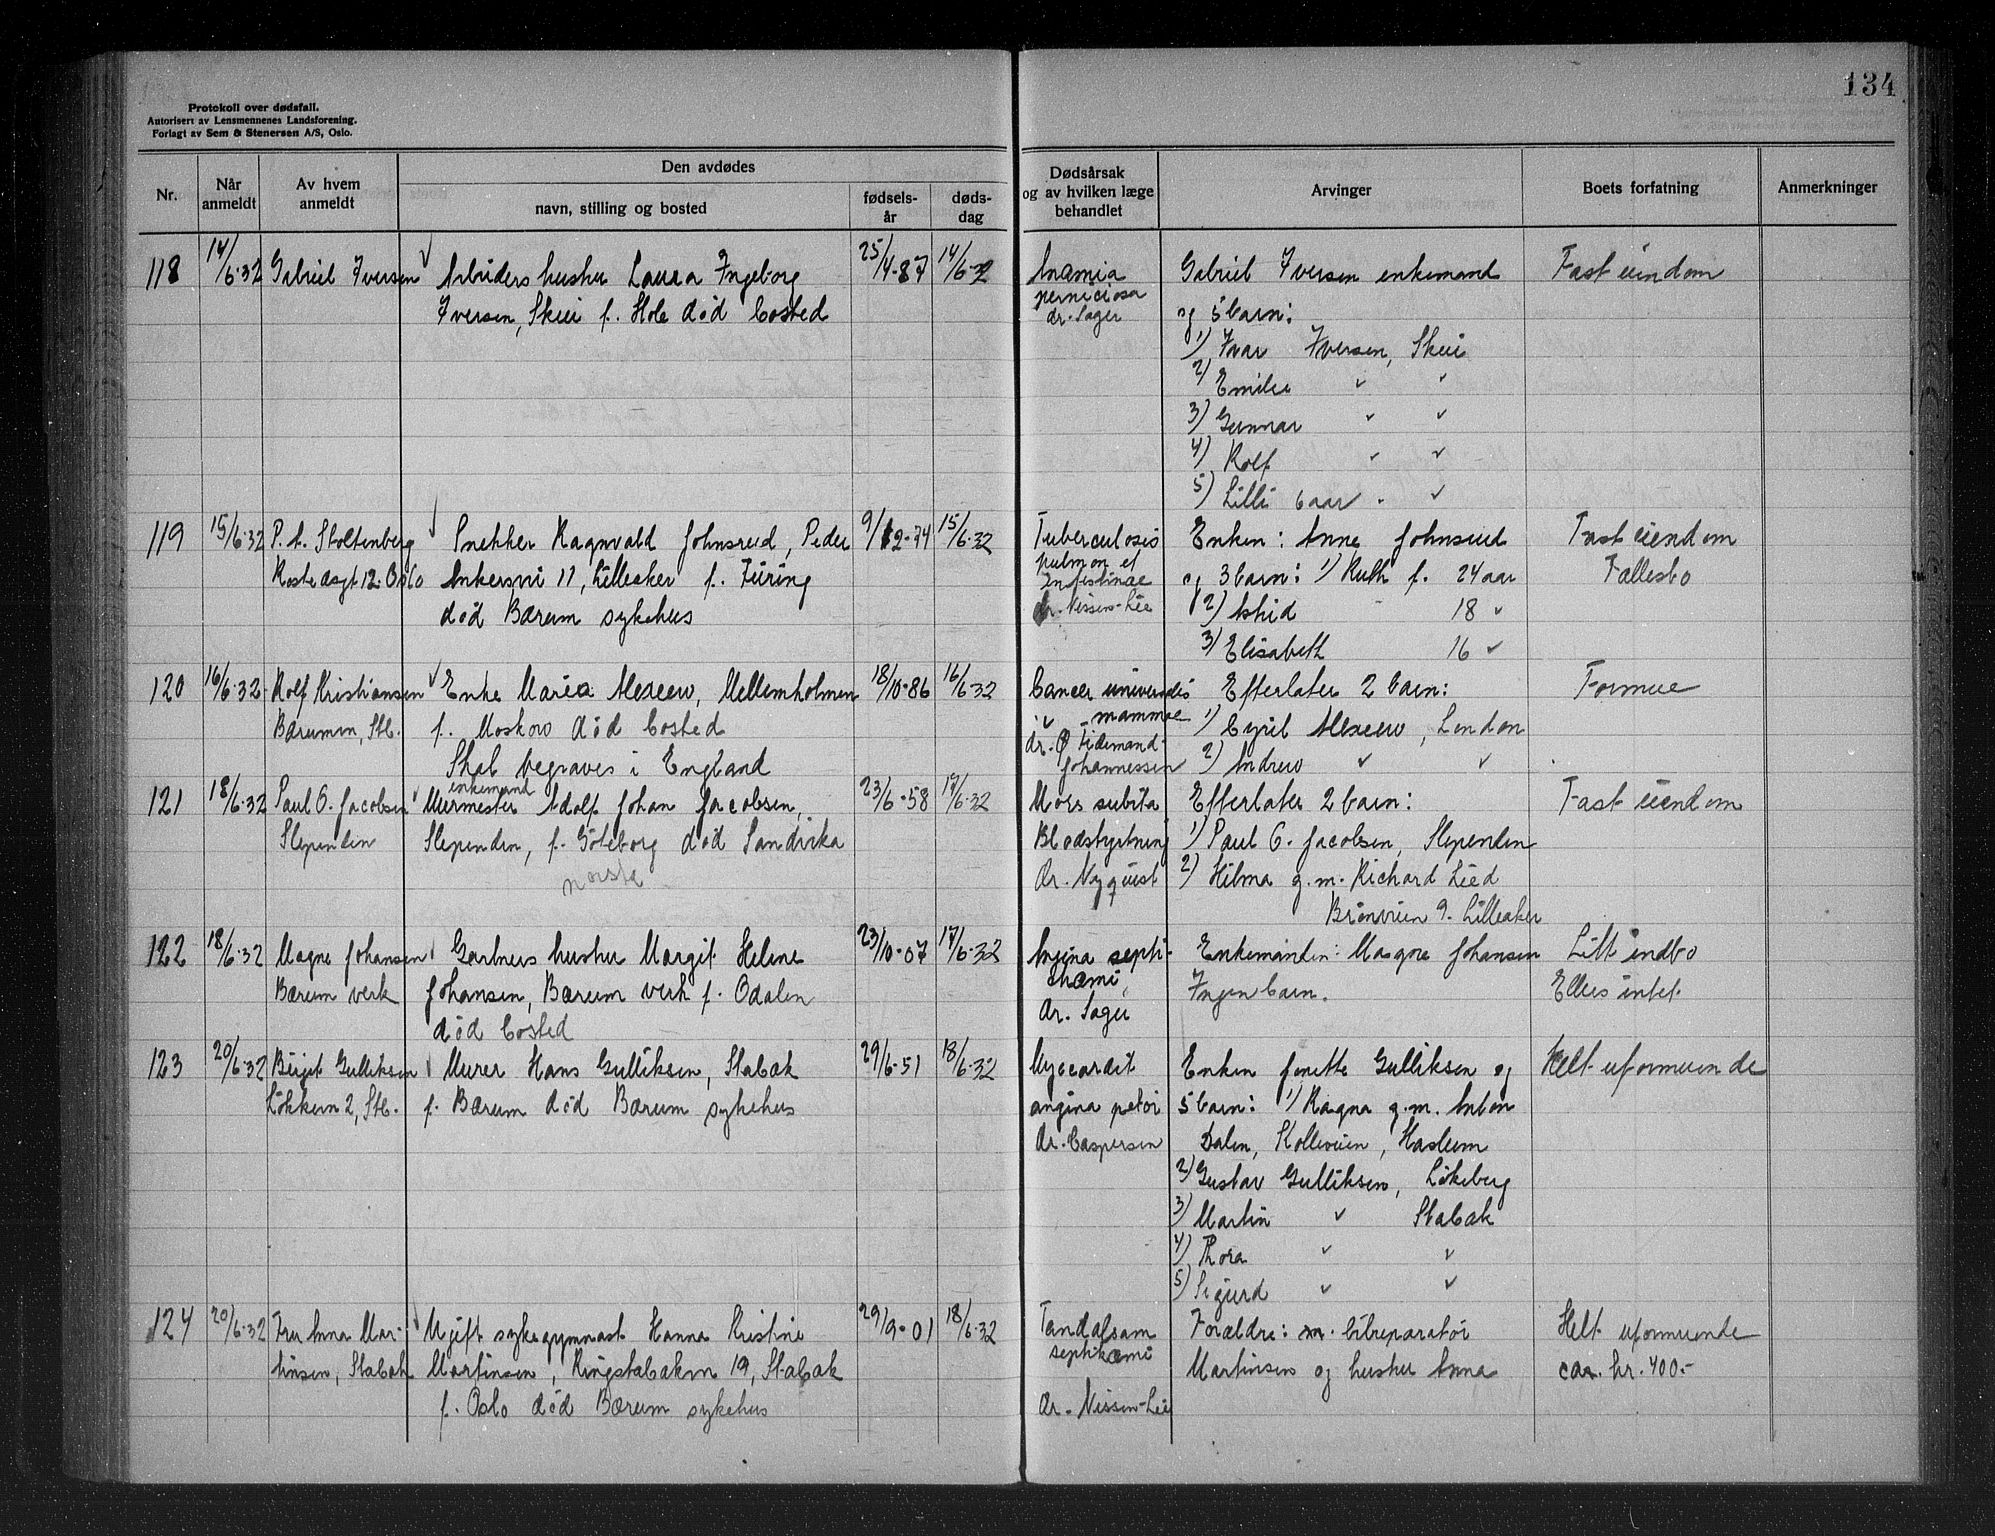 134
Protokoll over dødsfall.
Autorisert av Lensmennenes Landsforening.
Forlagt av Sem & Stenersen A/S, Oslo.
Nr.
Når anmeldt
Av hvem anmeldt
Den avdødes
navn, stilling og bosted
fødsels-år
døds-dag
Dødsårsak og av hvilken læge behandlet
Arvinger
Boets forfatning
Anmerkninger
118
14/6-32
Gabriel Iversen
Arbeiders hustru Laura Ingeborg
Iversen, Skui f. Hole død bosted
25/4-87
14/6-32
Anæmia
perniciosa
dr. Sager
Gabriel Iversen enkemand
og 5 barn:
1) Ivar Iversen, Skui
2) Emilie " "
3) Gunnar " "
4) Rolf " "
5) Lilli 6 aar " "
Fast eiendom
119
15/6-32
P. A. Stoltenberg
Rostedsgt 12. Oslo
Snekker Ragnvald Johnsrud, Peder
Ankersvei 11, Lilleaker f. Turing
død Bærum sykehus
9/12-74
15/6-32
Tuberculosis
pulmon et
intestinae
dr. Nissen-Lie
Enken: Anne Johnsrud
og 3 barn: 1) Ruth f. 24 aar
2) Astrid 18 "
3) Elisabeth 16 "
Fast eiendom
Fællesbo
120
16/6-32
Rolf Kristiansen
Bærumsv, Stb.
Enke Maria Alexeew, Mellemholmen
f. Moskow død bosted
Skal begraves i England
18/10-86
16/6-32
Cancer universalis
mammae
dr. Ø Tidemand-
Johannessen
Efterlater 2 barn:
1) Cyril Alexeew, London
2) Andrew " "
Formue
121
18/6-32
Paul O. Jacobsen
Slependen
enkemand
Murmester Adolf Johan Jacobsen,
Slependen, f. Göteborg død Sandvika
norsk
23/6-58
17/6-32
Mors subita
Blodstyrtning
Dr. Nyquist
Efterlater 2 barn:
1) Paul O. Jacobsen, Slependen
2) Hilma g.m. Richard Lied
Brönveien 9. Lilleaker
Fast eiendom
122
18/6-32
Magne Johansen
Bærum verk
Gartners hustru Margit Helene
Johansen, Bærum verk f. Odalen
død bosted
23/10-07
17/6-32
Angina septi-
chæmi,
Dr. Sager
Enkemanden: Magne Johansen
Ingen barn.
Litt indbo
Ellers intet
123
20/6-32
Birgit Gulliksen
Løkkevn 2, Stb.
Murer Hans Gulliksen, Stabæk
f. Bærum død Bærum sykehus
29/6-51
18/6-32
Myocardit
angina petori
Dr. Caspersen
Enken Jonette Gulliksen og
5 barn: 1) Ragna g.m. Anton
Dalen, Kolleveien, Haslum
2) Gustav Gulliksen, Løkeberg
3) Martin " Stabæk
4) Thora " "
5) Sigurd " "
Helt uformuende
124
20/6-32
Fru Anna Mar-
tinsen, Stabæk
Ugift sykegymnast Hanna Kristine
Martinsen, Ringstabækvn 19, Stabæk
f. Oslo død Bærum sykehus
29/9-01
18/6-32
Septikæmi
Dr. Nissen-Lie
Forældre: bilreparatør
Martinsen og hustru Anna
Helt uformuende
ca. kr. 400.-